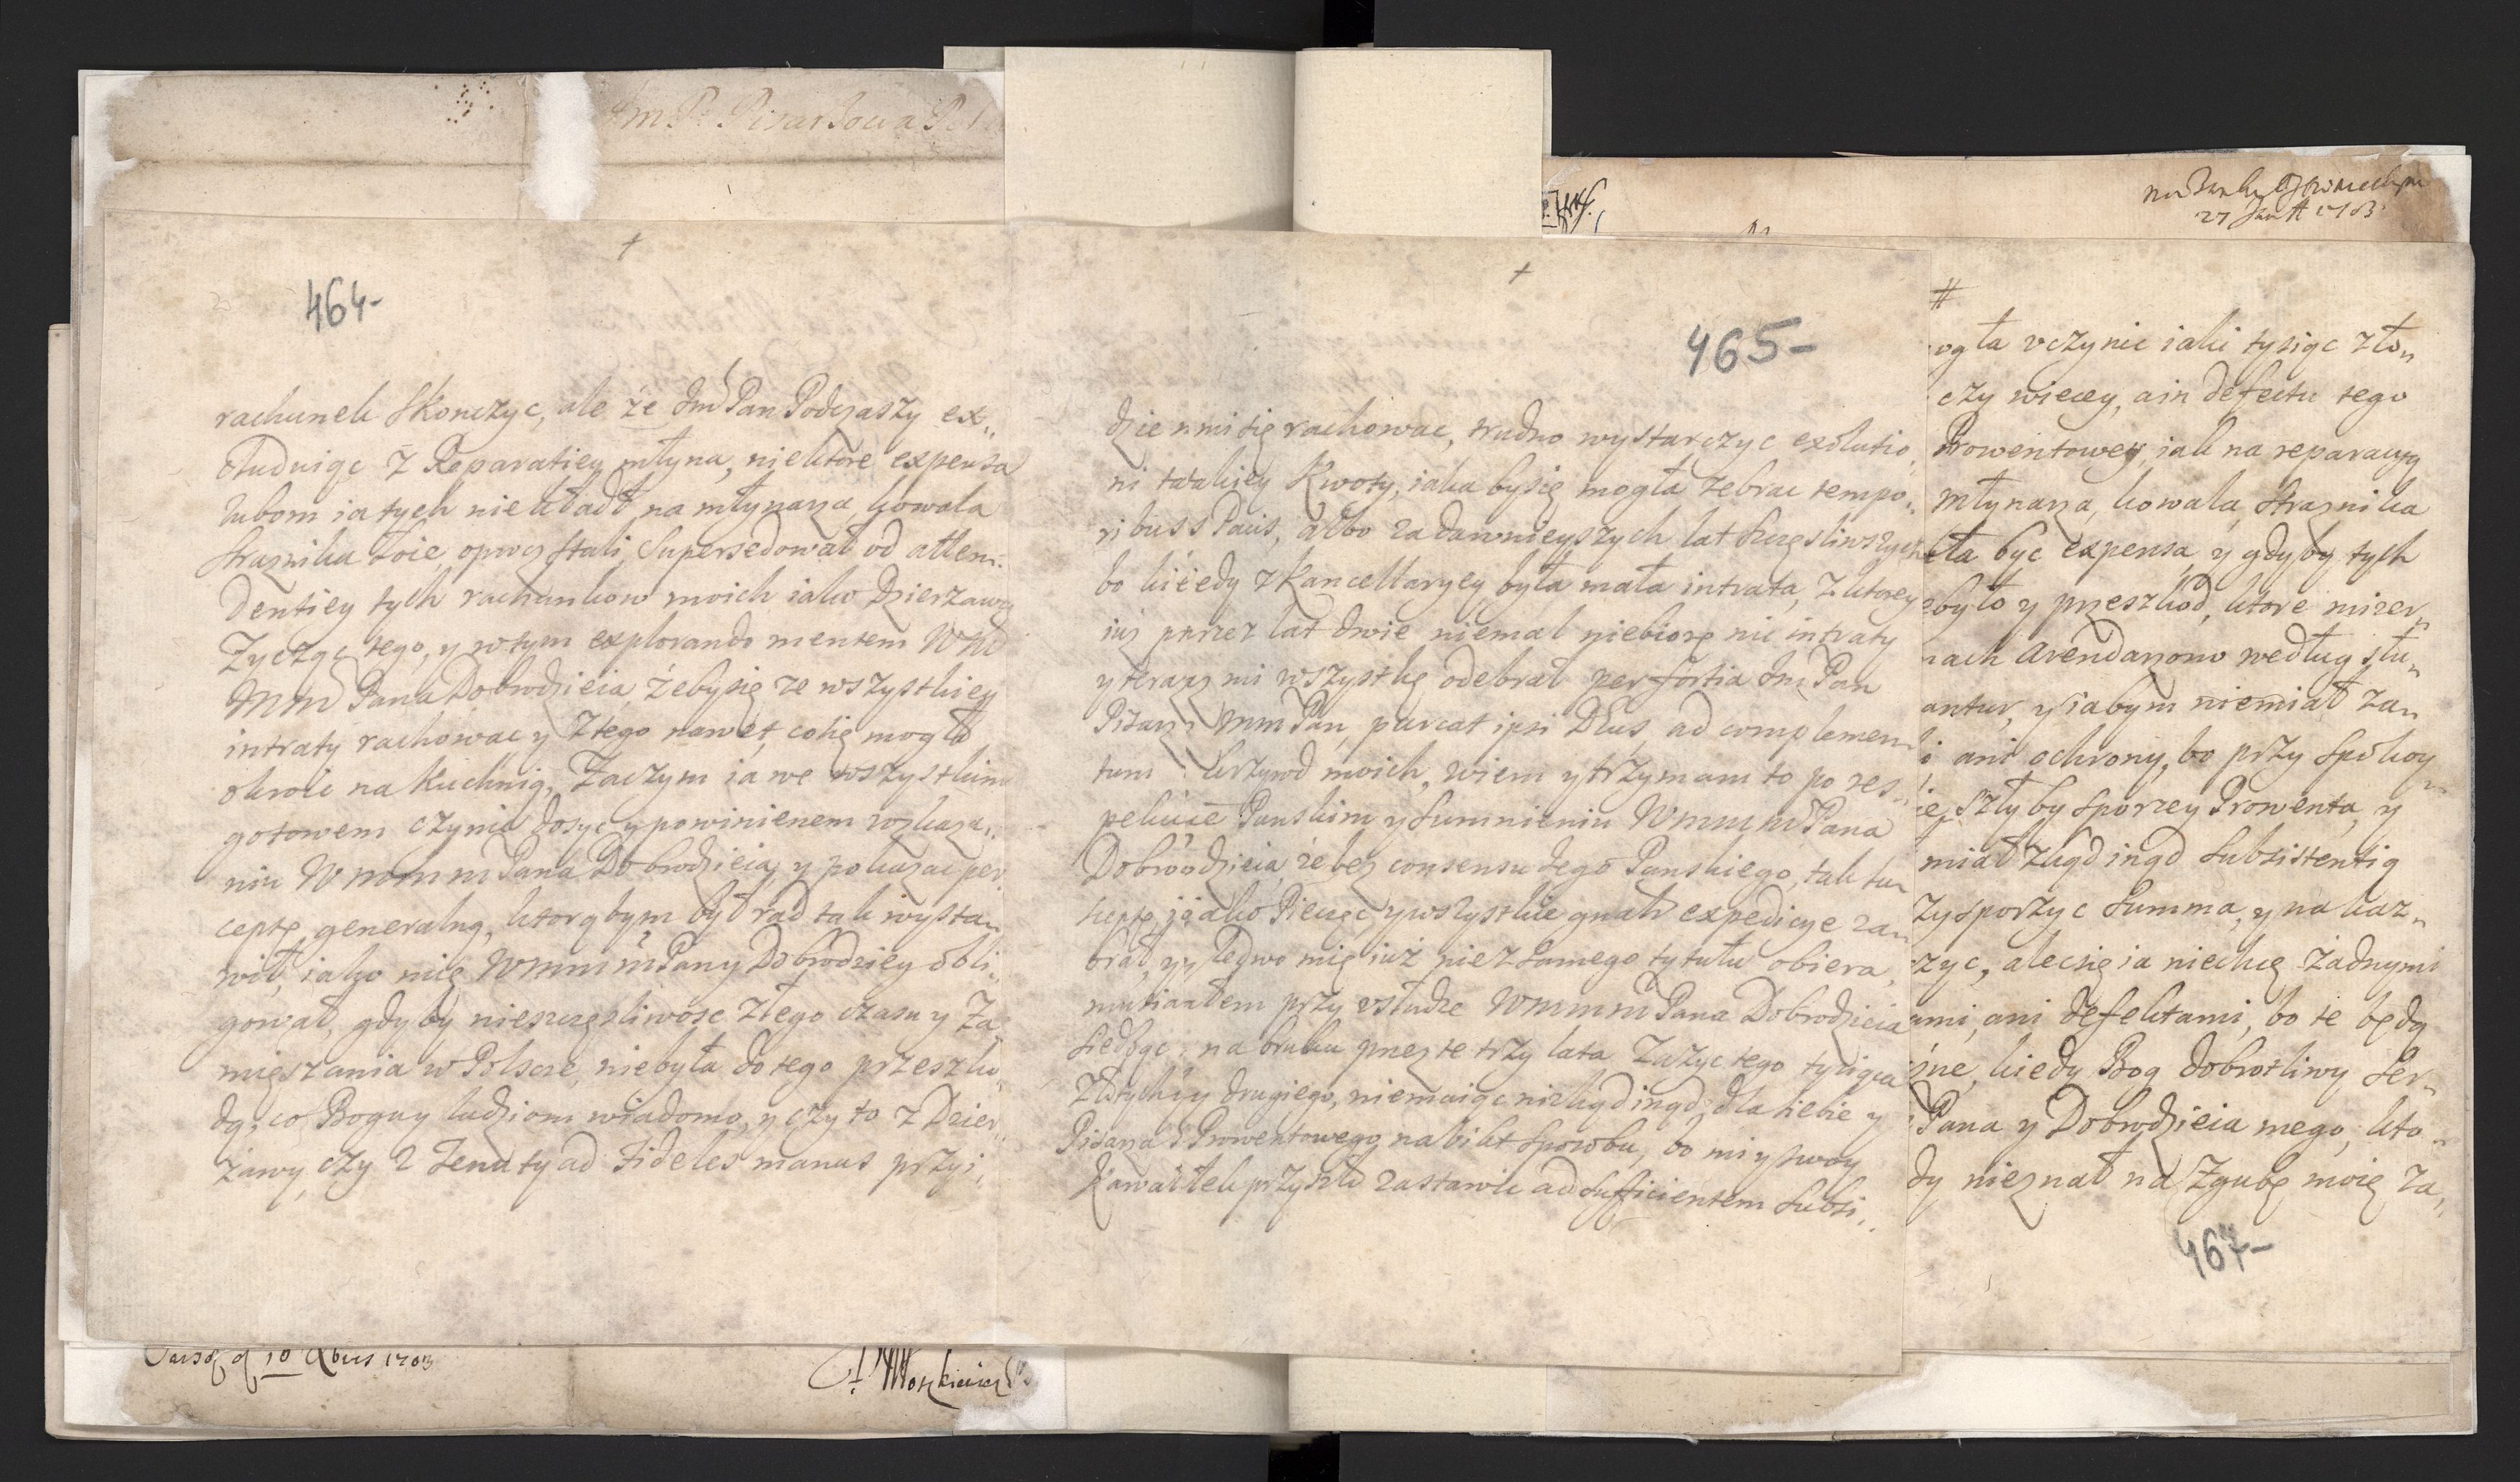 Im P. Pisarzowa
464-
rachunek skonczyc, ale że Jmć Pan Podczaszy ex„
cluduiąc z Reparatiey młyna, niektore expensa
lubom ia tych niekładł na młynarza, kowala
straznika
Dentiey tych rachunkow moich iako Dzierzawcy
Zyczący tego, y wtym explorando mentem WM
Mm Pana Dobrodzieia żebysię ze wszystkiey
intraty rachowac y z tego nawet, cosię mogło
okroic na kuchnią, Zaczym ia we wszystkim
gotowem czynic dosyc y powinienem rozkaza„
niu Wmmm Pana Dobrodzieia, y pokazac per„
ceptę generalną, ktorąbym był rad tak wysta„
wił, iako mię Wmmm Pany Dobrodziey obli„
gował, gdyby nieszczęsliwosc złego czasu y Za„
mięszania w Polscze, niebyła do tego przeszko„
dą, co Bogu y ludziom wiadomo, y czy to z Dzier„
żawy, czy z Tenuty ad fideles manus przyi„
465-
dzie nmi się rachowac, trudno wystarczyc exolutio„
ni takiey kwoty, iaka bysię mogła zebrac tempo„
ribus Pacis, albo za dawnieyszych lat szczęsliwszych
bo kiedy z Kancellaryey była mała intrata, z ktorey
iuz przez lat dwie niemal niebiorę nic intraty
y teraz mi wszystkę odebrał per fortia Jmć Pan
Pisarz Mm Pan, parcat ipsi Deus, ad complemen„
tum krzywd moich, wiem y trzymam to po res„
pekcie Panskim y sumnieniu Wmmm Pana
Dobrodzieia, że bez consensu Jego Panskiego, tak
iako Pieczęc, y wszystkie gnati expedicye za„
brał, y ledwo mię iuż niez samego tytułu obiera,
musiałem przy usłudze Wmmm Pana Dobrodzieia
siedząc na bruku przez te trzy lata Zazyc tego tysiąca
złotych czy drugiego, niemaiąc nizkąd inąd, dla siebie y
Pisarza Prowentowego sposobu, bo mi y swoy
kawałek przyszło zastawic ad sufficientem subsi„
#
ogła uczynic iaki tysiąc zło„
czy wiecey, a in defectu tego
Prowentowey, iak na reparacyą
młynarza, kowala, straznika
ła byc expensa, y gdyby tych
było y przeszkod, ktore mizer„
nach Arendarzow według słu„
antur, y iabym niemiał za„
i ani ochrony, bo przy spokoy„
ie, szłyby sporzey Prowenta, y
miał zkąd inąd subsistentią
Zysporzyc summa, y na kaz„
zyc, alecsię ia niechcę żadnymi
ami, ani defektami, bo te będą
ne, kiedy Bog dobrotliwy ser„
Pana y Dobrodzieia mego, kto„
dy nieznał na zgubę moię za„
467-
27 1703
d 10 Xbris 1703